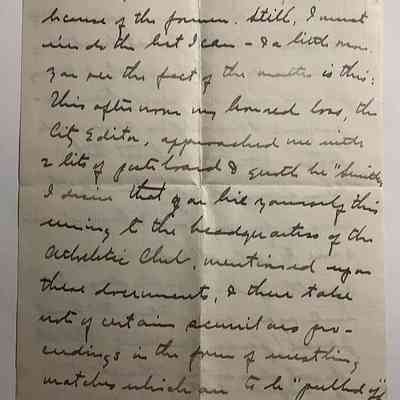 because of the former. Still, I must
even do the best I can - & a little more.
you see the fact of the matter is this:
This afternoon my honored boss, the
City Editor, approached me with
2 bits of pasteboard & quoth he "Smith
I desire that you hie yourself this
evening to the headquarters of the
Atheletic Club, mentioned upon
these documents, & there take
note of certain peculiar pro-
ceedings in the form of wrestling
matches which are to be "pulled off"